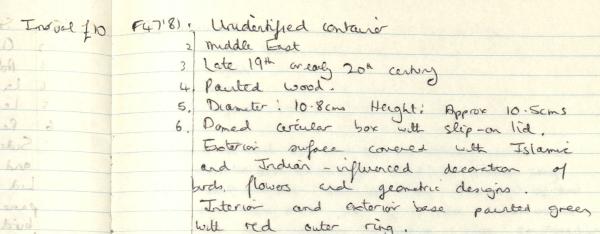 Insval £10 F47'8). Unidentified container
2 Middle East
3 Late 19th or early 20th century
4. Painted wood.
5. Diameter: 10.8cms Height: Approx 10.5cms
6. Domed circular box with slip-on lid.
Exterior surface covered with Islamic
and Indian-influenced decoration of
birds, flowers and geometric designs.
Interior and exterior base painted green
with red outer ring.